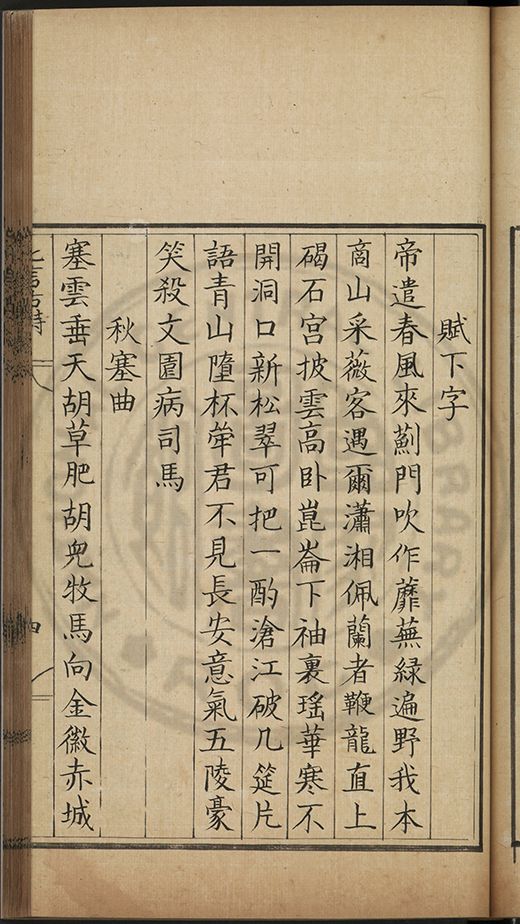 賦下字
帝遣春風來薊門吹作蘼蕪緑遍野我本
商山采薇客遇爾瀟湘佩蘭者鞭龍直上
碣石宫披雲高卧崑崙下袖裏瑶華寒不
開洞口新松翠可把一酌滄江破几筵片
語青山墮杯斝君不見長安意氣五陵豪
笑殺文園病司馬
秋塞曲
塞雲垂天胡草肥胡兒牧馬向金徽赤城
七言古詩
四